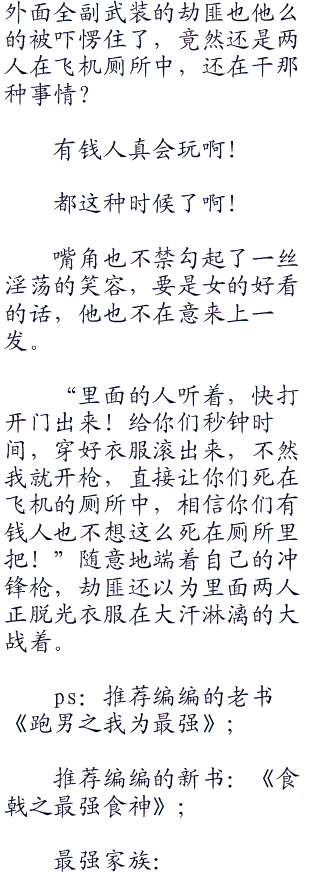 外面全副武装的劫匪也他么
的被吓愣住了，竟然还是两
人在飞机厕所中，还在干那
种事情？
有钱人真会玩啊！
都这种时候了啊！
嘴角也不禁勾起了一丝
淫荡的笑容，要是女的好看
的话，他也不在意来上一
发。
“里面的人听着，快打
开门出来！给你们秒钟时
间，穿好衣服滚出来，不然
我就开枪，直接让你们死在
飞机的厕所中，相信你们有
钱人也不想这么死在厕所里
把！”随意地端着自己的冲
锋枪，劫匪还以为里面两人
正脱光衣服在大汗淋漓的大
战着。
ps：推荐编编的老书
《跑男之我为最强》；
推荐编编的新书：《食
戟之最强食神》；
最强家族：